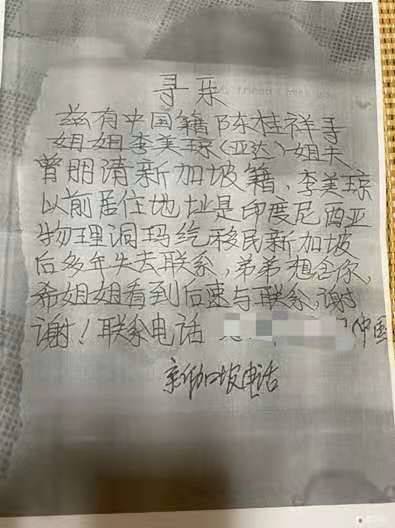 寻亲
兹有中国籍陈桂祥寻
姐姐李美琼(亚达)姐夫
曾明清新加坡籍，李美琼
以前居住地址是印度尼西亚
物理洞玛纥移民新加坡
后多年失去联系，弟弟想念你，
希姐姐看到后速与联系谢
谢！联系电话 中国
新加坡电话